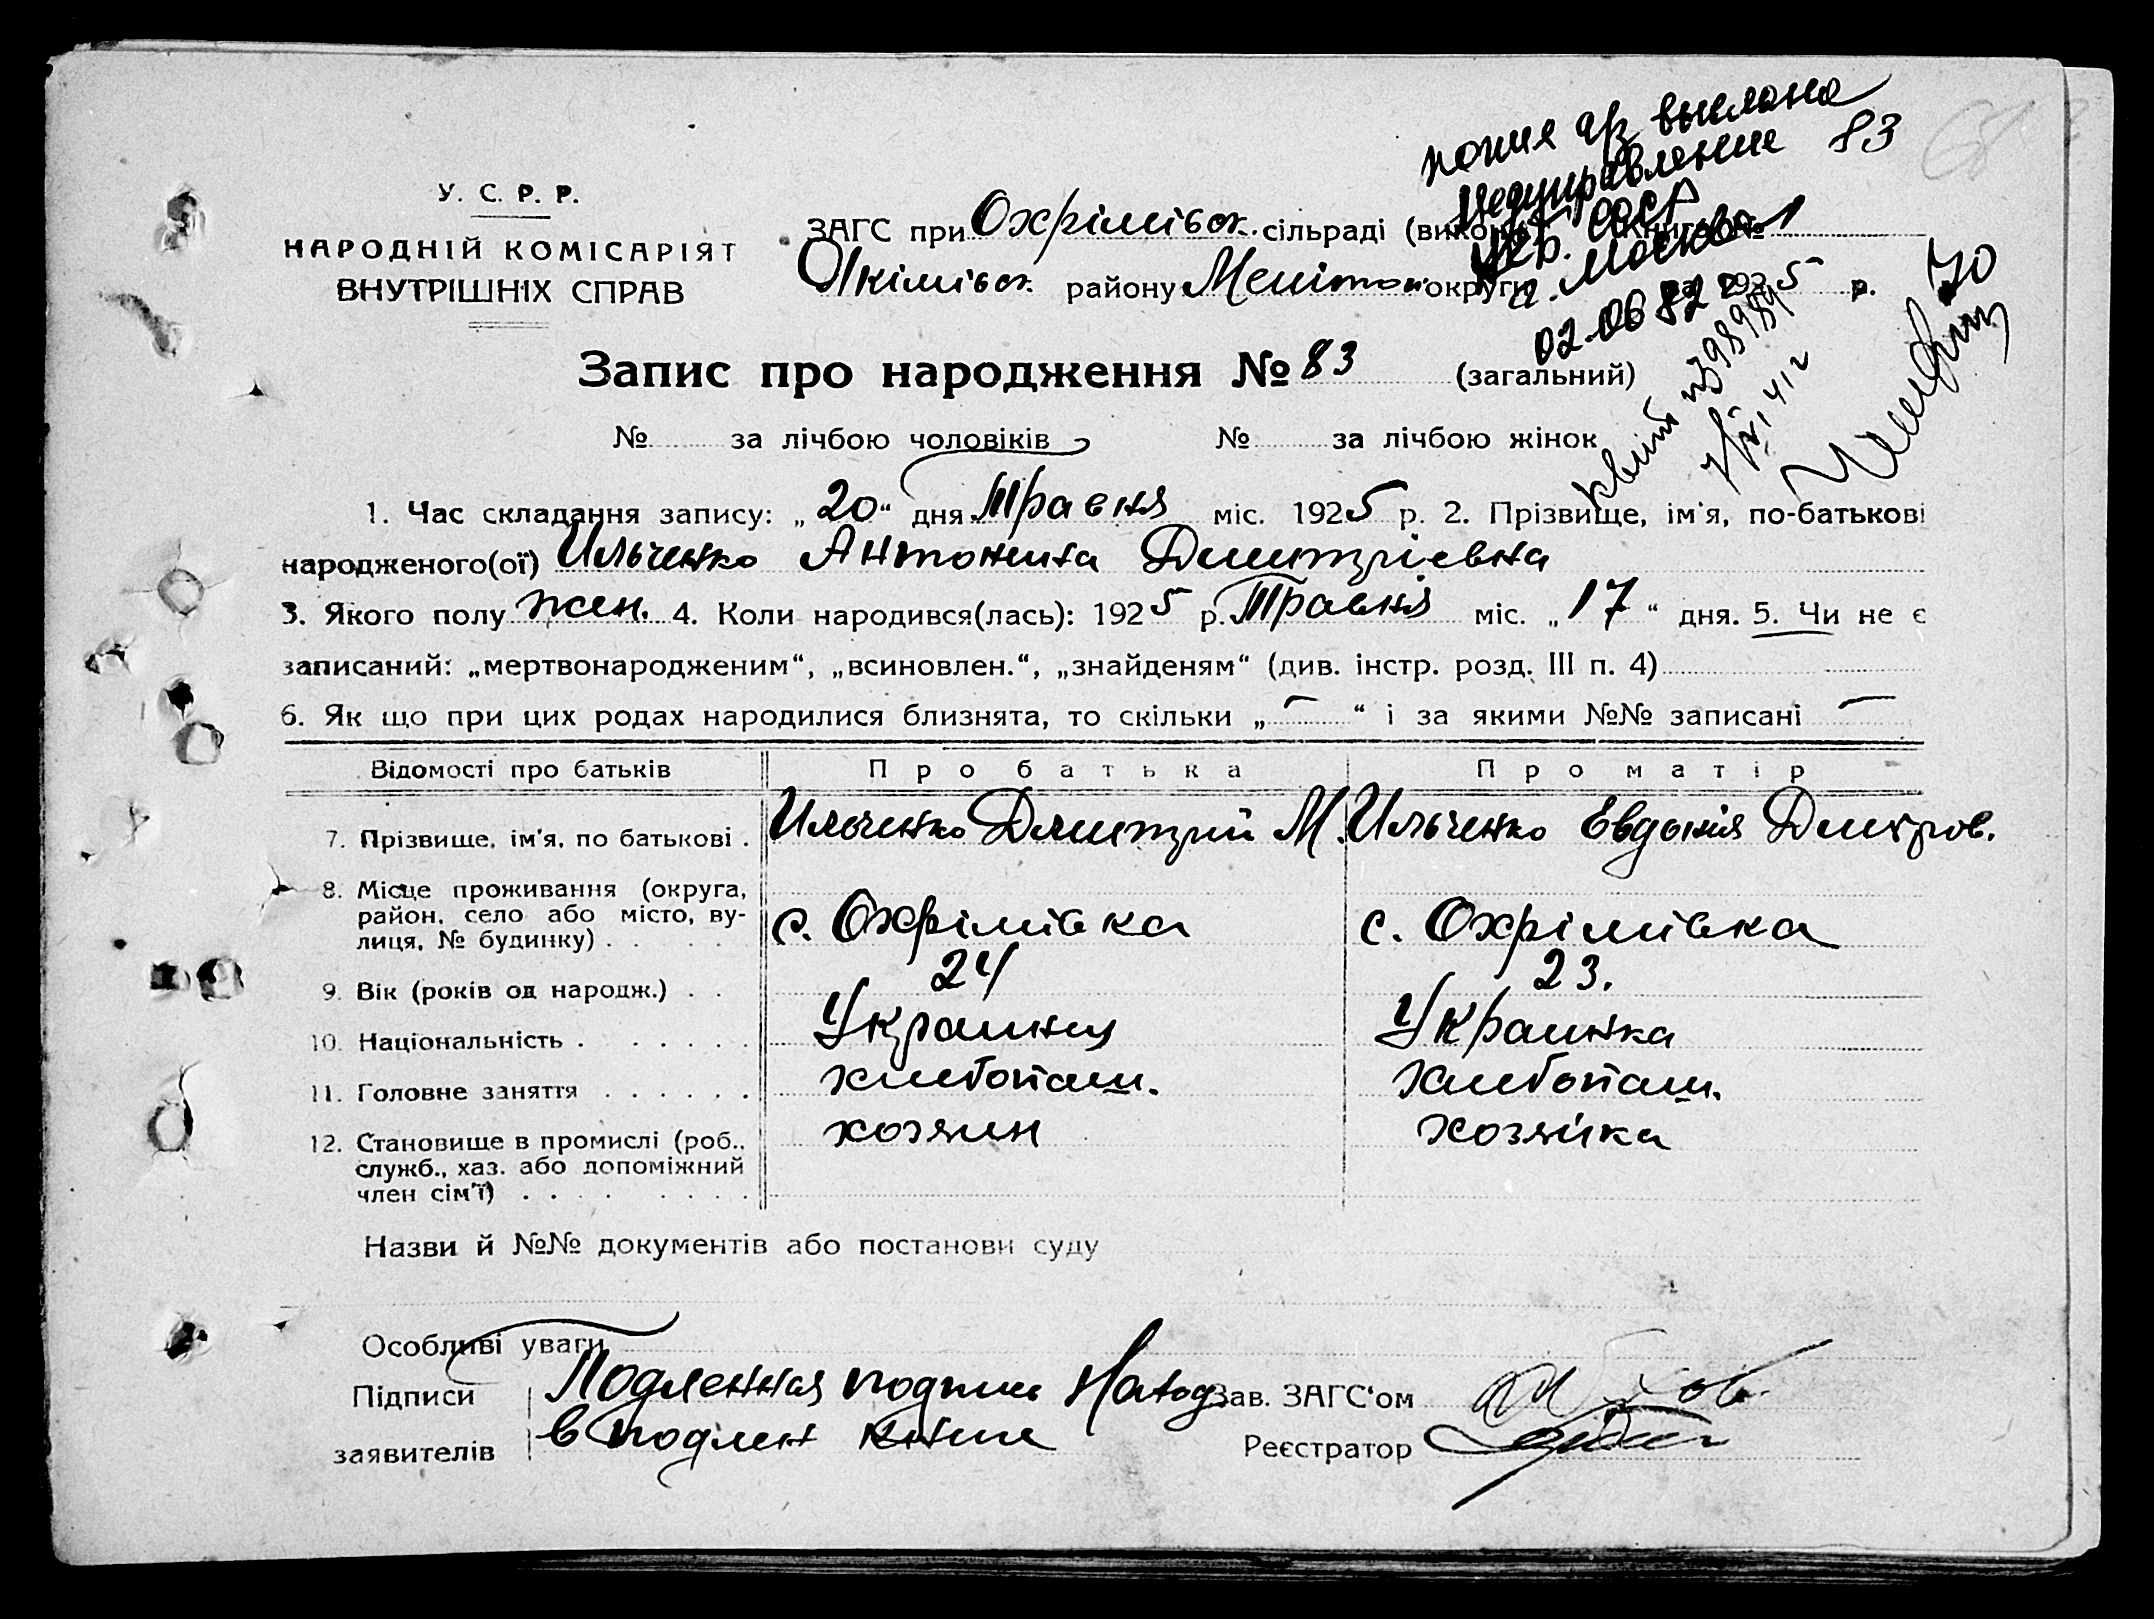 копия а/з выслана
83
У. С. Р. Р.
НАРОДНІЙ КОМІСАРІЯТ
ВНУТРІШНІХ СПРАВ
ЗАГС при Охрімівськ. сільраді
Якімівськ. району Мелітоп. округи 1925 р.
СССР
г. Москва
02.06 82
70
Запис про народження № 83 (загальний)
№ за лічбою чоловіків № за лічбою жінок
1. Час складання запису: „20“ дня Травня міс. 1925 р. 2. Прізвище, ім'я, по-батькові
народженого(ої) Ильченко Антонина Дмитріевна
3. Якого полу жен. 4. Коли народився(лась): 1925 р. Травня міс. „17“ дня. 5. Чи не є
записаний: „мертвонародженим“, „всиновлен.“, „знайденям“ (див. інстр. розд. III п. 4)
6. Як що при цих родах народилися близнята, то скільки „–“ і за якими №№ записані –
Відомості про батьків Про батька Про матір
7. Прізвище, ім'я, по батькові . Ильченко Дмитрий М. Ильченко Евдокія Дмитров.
8. Місце проживання (округа,
район, село або місто, ву-
лиця, № будинку) . . с. Охрімівка с. Охрімівка
9. Вік (років од народж.) . . 24 23.
10. Національність . . . . . . Украинец Украинка
11. Головне заняття . . . . . . хлебопаш. хлебопаш.
12. Становище в промислі (роб.. хозяин хозяйка
служб., хаз. або допоміжний
член сім'ї) . . . . . . . .
Назви й №№ документів або постанови суду
Особливі уваги
Підписи Подленная подпись Наход. Зав. ЗАГС'ом
заявителів в подлен книге Реєстратор